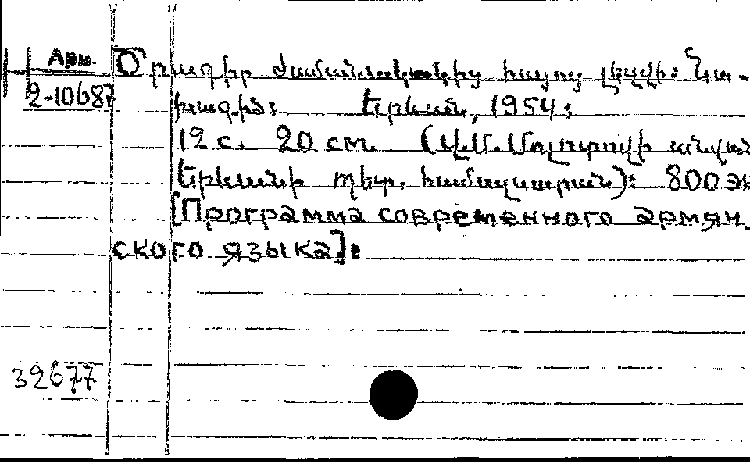 Арм.
2-10687
Ծրագիր ժամանակակից հայոց լեզվի: Նա-
խագիծ: Երևան, 1954:
12 с. 20 см. (Վ.Մ. Մոլոտովի անվան
Երևանի պետ. համալսարան): 800 эк
[Программа современного армян-
ского языка]:
32677